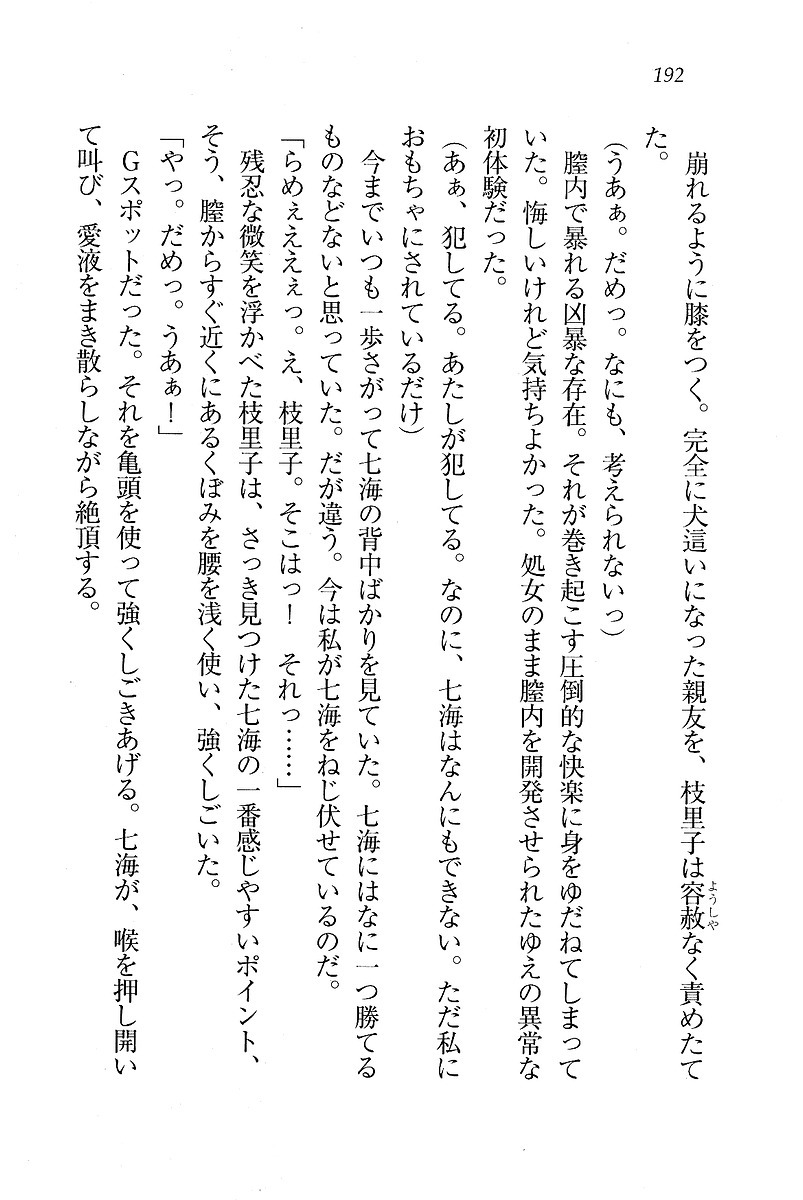 192
崩れるように膝をつく。完全に犬這いになった親友を、枝里子は容赦なく責めたて
ようしゃ
た。
(うあぁ。だめっ。なにも、考えられないっ)
膣内で暴れる凶暴な存在。それが巻き起こす圧倒的な快楽に身をゆだねてしまって
いた。悔しいけれど気持ちよかった。処女のまま膣内を開発させられたゆえの異常な
初体験だった。
(あぁ、犯してる。あたしが犯してる。なのに、七海はなんにもできない。ただ私に
おもちゃにされているだけ)
今までいつも一歩さがって七海の背中ばかりを見ていた。七海にはなに一つ勝てる
ものなどないと思っていた。だが違う。今は私が七海をねじ伏せているのだ。
「らめぇええぇっ。え、枝里子。そこはっ！　それっ……」
残忍な微笑を浮かべた枝里子は、さっき見つけた七海の一番感じやすいポイント、
そう、膣からすぐ近くにあるくぼみを腰を浅く使い、強くしごいた。
「やっ。だめっ。うあぁ！」
Gスポットだった。それを亀頭を使って強くしごきあげる。七海が、喉を押し開い
て叫び、愛液をまき散らしながら絶頂する。